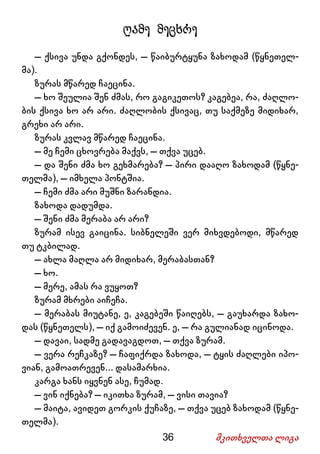 ღამე მეცხრე
— ქსივა უნდა გქონდეს, — წაიბურტყუნა ზახოდამ (წყნეთელ-
მა).
ზურას მწარედ ჩაეცინა.
— ხო შეულია შენ ძმას, რო გაგიკეთოს? კაგებეა, რა, ძაღლო-
ბის ქსივა ხო არ არი. ძაღლობის ქსივაც, თუ საქმეზე მიდიხარ,
გრეხი არ არი.
ზურას კვლავ მწარედ ჩაეცინა.
— მე ჩემი ცხოვრება მაქვს, — თქვა უცებ.
— და შენი ძმა ხო გეხმარება? — პირი დააღო ზახოდამ (წყნე-
თელმა), — იმხელა პონტშია.
— ჩემი ძმა არი მუშნი ზარანდია.
ზახოდა დადუმდა.
— შენი ძმა მერაბა არ არი?
ზურამ ისევ გაიცინა. სიბნელეში ვერ მიხვდებოდი, მწარედ
თუ ტკბილად.
— ახლა მაღლა არ მიდიხარ, მერაბასთან?
— ხო.
— მერე, ამას რა ვუყოთ?
ზურამ მხრები აიჩეჩა.
— მერაბას მიუტანე, ე, კაგებეში წაიღებს, — გაუხარდა ზახო-
დას (წყნეთელს), — იქ გამოიძევენ. ე, — რა გულიანად იცინოდა.
— დავაი, სადმე გადავაგდოთ, — თქვა ზურამ.
— ვერა რეჩკაზე? — ჩაფიქრდა ზახოდა, — ტყის ძაღლები იპო-
ვიან, გამოათრევენ... დასამარხია.
კარგა ხანს იყვნენ ასე, ჩუმად.
— ვინ იქნება? — იკითხა ზურამ, — ვისი თავია?
— მაიტა, ავიდეთ გორკის ქუჩაზე, — თქვა უცებ ზახოდამ (წყნე-
თელმა).
36 მკითხველთა ლიგა